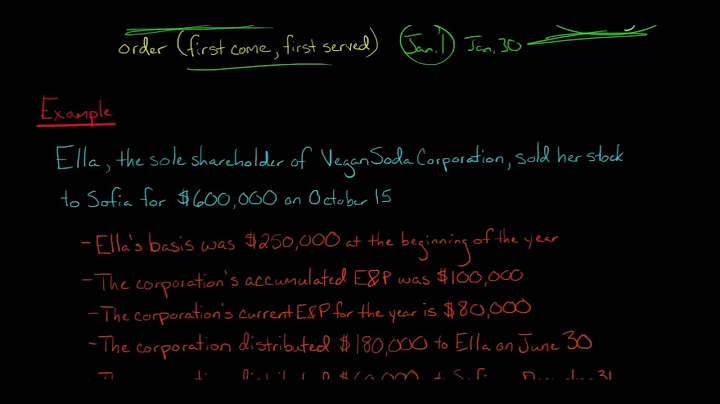 order (first come, first served) Jan. 1 Jan. 30
Example
Ella, the sole shareholder of Vegan Soda Corporation, sold her stock
to Sofia for $600,000 on October 15
- Ella's basis was $250,000 at the beginning of the year
- The corporation's accumulated E&P was $100,000
- The corporation's current E&P for the year is $80,000
- The corporation distributed $180,000 to Ella on June 30